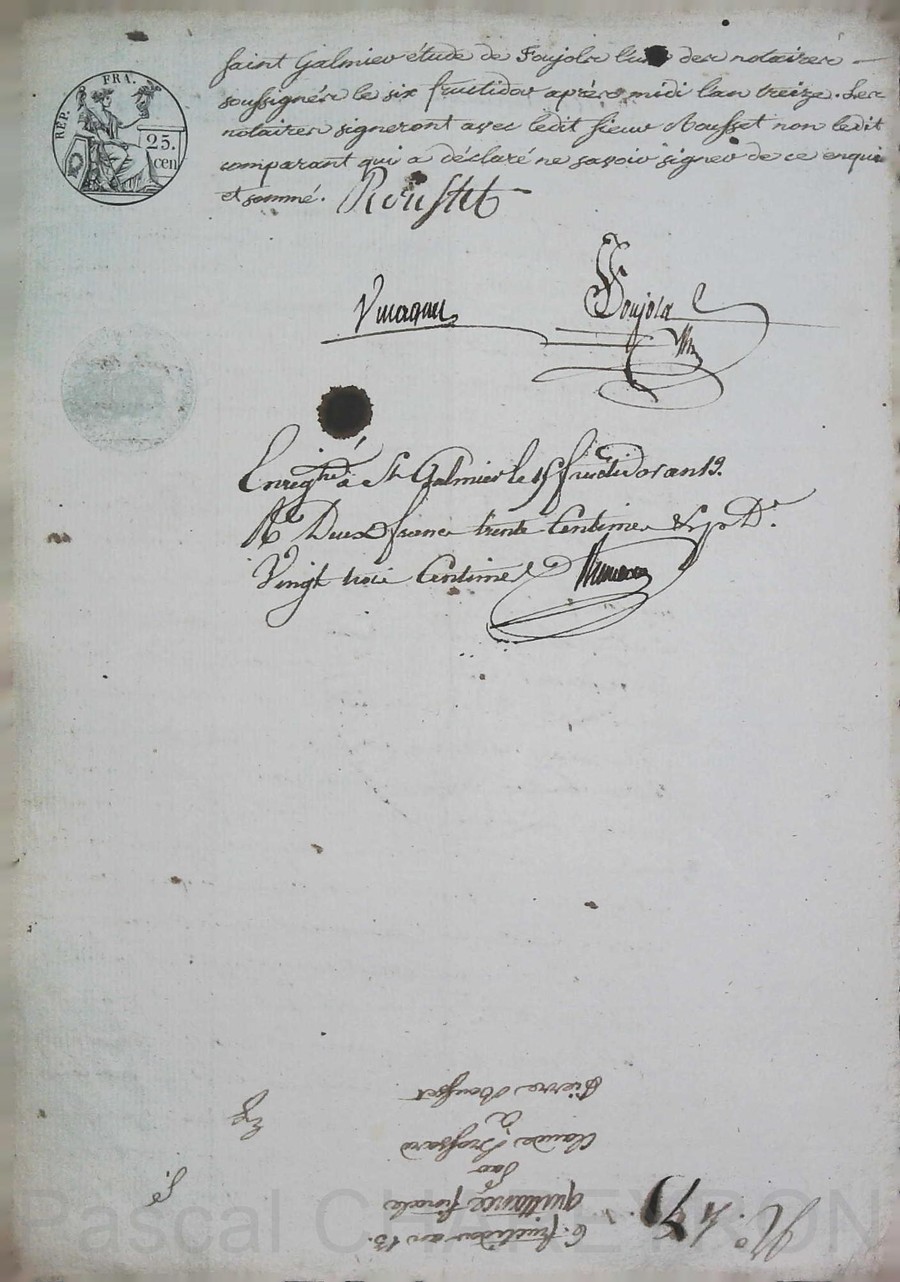 RÉP. FRA.
25.
cen
saint Galmier étude de Foujols l'un des notaires
soussignés le six fructidor après midi l'an treize. Les
notaires signeront avec ledit sieur Rousset non ledit
comparant qui a déclaré ne savoir signer de ce enquis
et sommé. Roustet
Foujols
Enregtré à St Galmier le 15 fructidor an 13.
Rç Deux francs trente Centimes
Vingt trois Centimes
N°. 145.
6. fructidor an 13.
quittance finale
par
Claude Brossard
à
Pierre Rousset
Pascal CHAREYRON